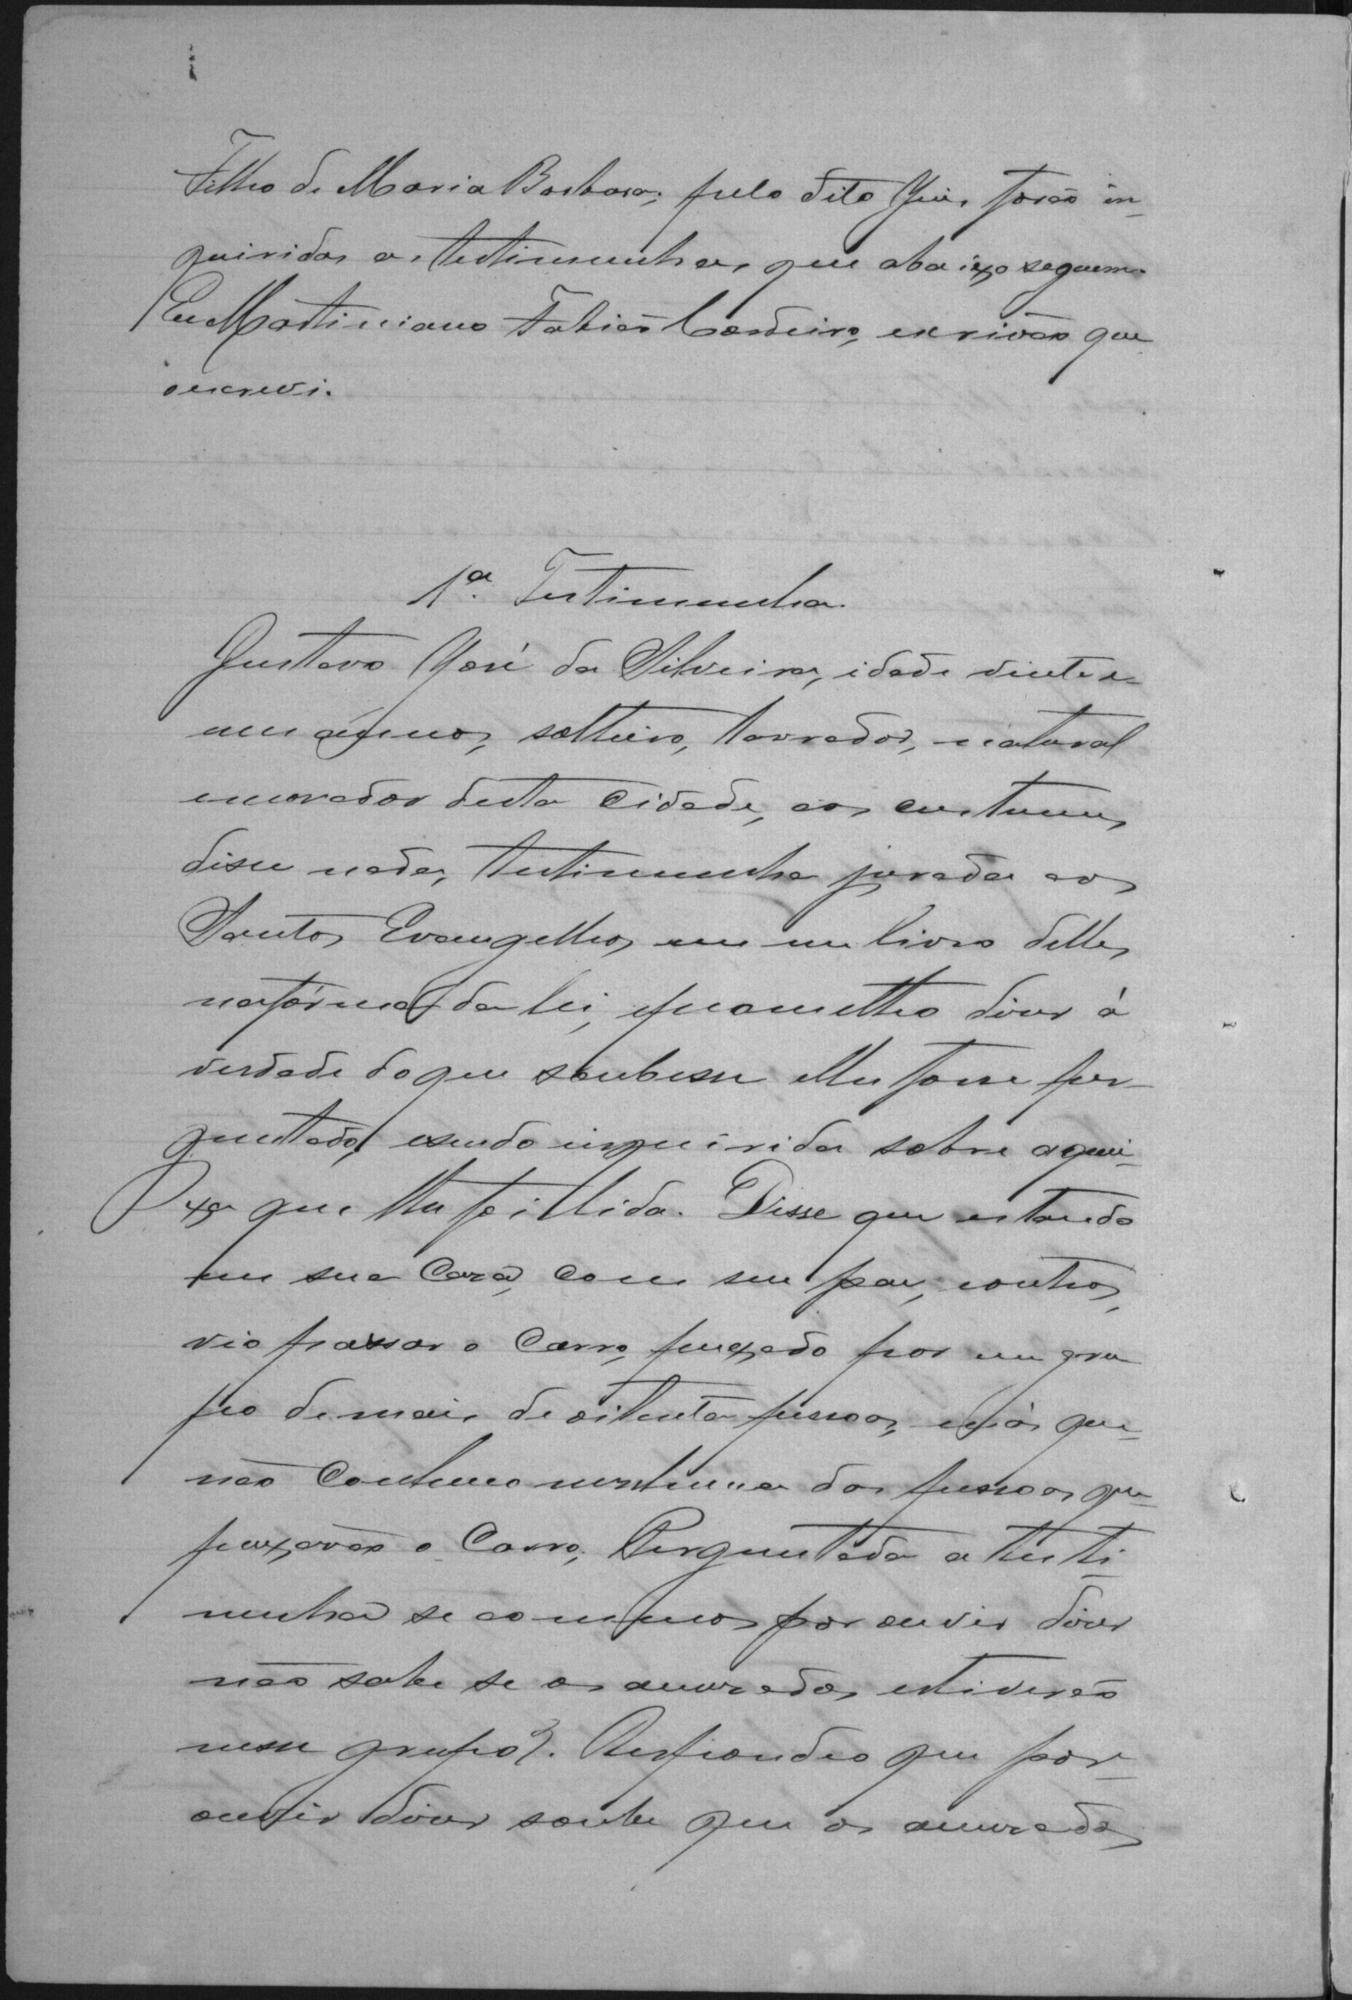 Filho de Maria Barbosa; pelo dito Juis forão in-
queridas as testimunhas, que abaixo seguem.
Eu Martiniano Fabião Cordeiro, escrivão que
oescrevi.
1ª. Testimunha.
Gustavo José da Silveira, idade vinte e
um annos, soltteiro, lavrador, natural
emorador desta Cidade, aos custumes
disse nada, testimunha jurada aos
Santos Evangelhos em um livro delles
nafórma da lei, eprometteo diser á
verdade doque soubesse elhe fosse per-
guntado, esendo inquirida sobre aquei-
xa que lhe foi llida. Disse que estando
em sua Casa, com seu pai, eoutros,
vio passar o Carro, puxado por um gru
po demais de oitenta pessoas, mas que
não Conheceo nenhuma das pessoas que
puxavão o Carro. Perguntada a testi-
munha se ao menos por ouvir diser
não sabe se os accusados estiverão
nesse grupo?. Respondeo que por
ouvir diser soube que os accusados